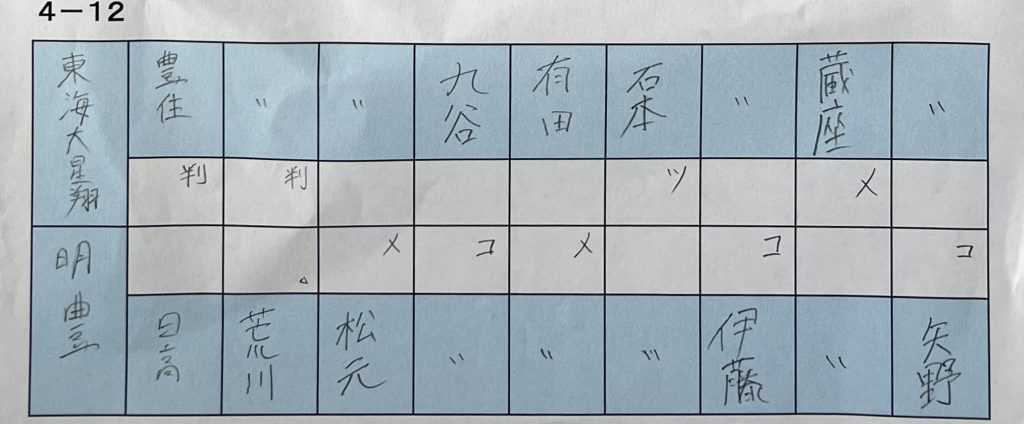 4-12
東海大星翔 豊住 〃 〃 九谷 有田 石本 〃 蔵座 〃
判 判 ツ メ
メ コ メ コ コ
明豊 日高 荒川 松元 〃 〃 〃 伊藤 〃 矢野